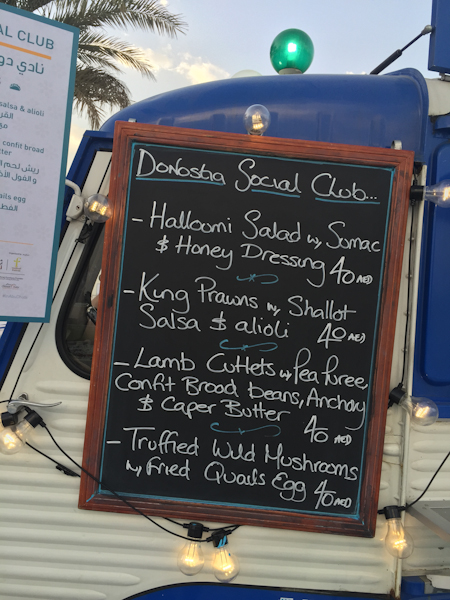 AL CLUB
نادي دو
salsa & alioli
confit broad
tter
ails egg
Donostia Social Club...
- Halloumi Salad w/ Sumac
& Honey Dressing 40 AED
- King Prawns w/ Shallot
Salsa & alioli 40 AED
- Lamb Cutlets w/ Pea Puree,
Confit Broad beans, Anchovy
& Caper Butter 40 AED
- Truffled Wild Mushrooms
w/ Fried Quails Egg 40 AED